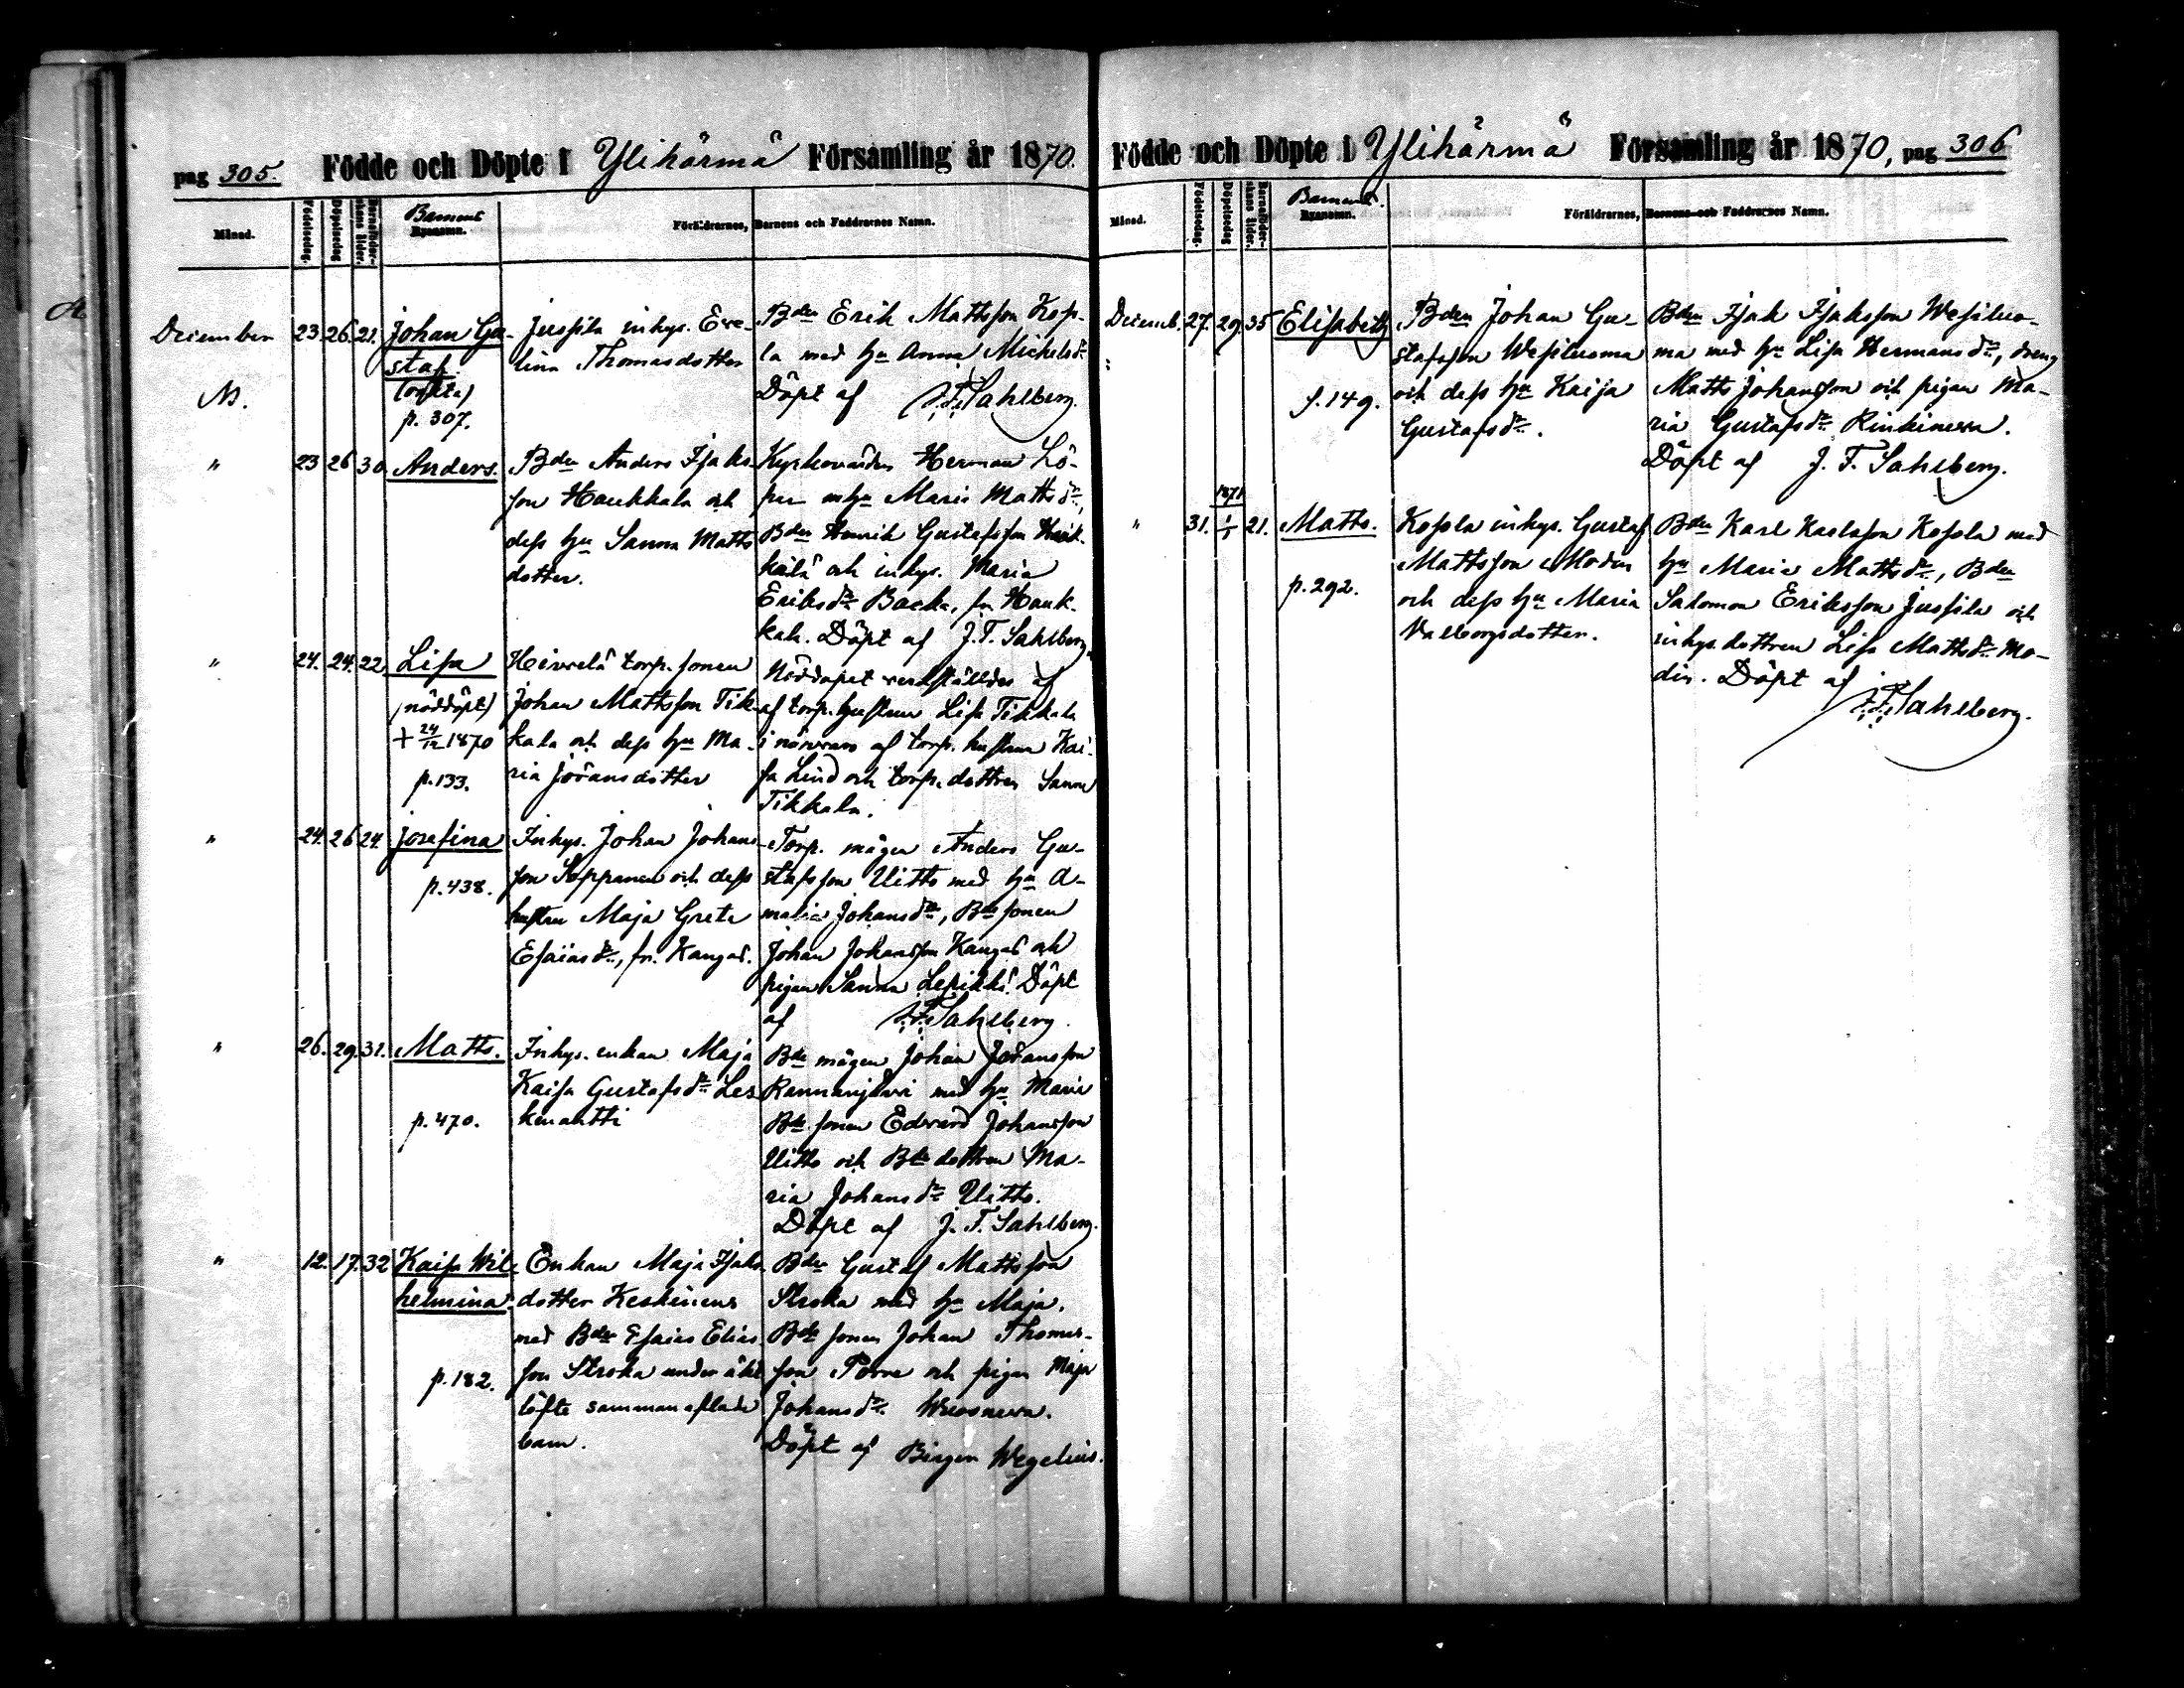 pag 305. Födde och Döpte i Ylihärmä Församling år 1870.
Månad. Födelsedag. Döpelsedag Barnaföderskans ålder. Barnens Byanamn. Föräldrarnes, Barnens och Faddrarnes Namn.
December 23. 26. 21. Johan Gustaf.
(oäkta)
p. 307.
N.
Jussila inhys. Eve-
lina Thomasdotter
Bden Erik Mattsson Kop-
la med hu Anna Michelsdr
Döpt af J. F. Sahlberg.
" 23 26 30 Anders.
Bden Anders Isaks-
son Haukkala och
dess hu Sanna Matts
dotter.
Kyrkovärden Herman Lö-
per mhu Maria Mattsdr,
Bden Henrik Gustafsson
och inhys. Maria
Eriksdr Backa, fr. Hauk-
kala. Döpt af J. F. Sahlberg.
" 24. 24. 22 Lisa
(nöddöpt)
+ 24/12 1870
p. 133.
torp. sonen
Johan Mattsson Tik-
kala och dess hu Ma-
ria Jöransdotter
Nöddopet verkställdes af
af torp. hustrun Lisa Tikkala
i närvaro af torp. hustrun Kai-
sa Lind och torp. dottren Sanna
Tikkala.
" 24. 26 24. Josefina
p. 438.
Inhys. Johan Johans-
son Seppänen och dess
hustru Maja Greta
Esaiasdr, fr. Kangas.
Torp. mågen Anders Gu-
stafsson Uitto med hu A-
malia Johansdr, Bde sonen
Johan Johansson Kangas och
pigan Sanna Döpt
af J. F. Sahlberg.
" 26. 29. 31. Matts.
p. 470.
Inhys. enkan Maja
Kaisa Gustafsdr Les-
kenantti
Bde mågen Johan Jöransson
Rannanjärvi med hu Maria
Bde sonen Edvard Johansson
Uitto och Bde dottren Ma-
ria Johansdr Uitto.
Döpt af J. F. Sahlberg.
" 12. 17. 32 Kaisa Wil-
helmina.
p. 182.
Enkan Maja Isaks-
dotter Keskinens
med Bden Esaias Elias
son Stroka under äkt.
löfte sammanaflade
barn.
Bden Gustaf Mattsson
Stroka med hu Maja.
Bde sonen Johan Thomas-
son Porre och pigan Maja
Johansdr
Döpt af Birger Wegelius.
Födde och Döpte i Ylihärmä Församling år 1870, pag 306
Månad. Födelsedag. Döpelsedag Barnaföderskans ålder. Barnens Byanamn. Föräldrarnes, Barnens och Faddrarnes Namn.
Decemb. 27. 29. 35 Elisabeth
p. 149.
Bden Johan Gu-
stafsson Wesiluoma
och dess hu Kaija
Gustafsdr.
Bden Isak Isaksson Wesiluo-
ma med hu Lisa Hermansdr, dreng
Matts Johansson och pigan Ma-
ria Gustafsdr Rinkineva.
Döpt af J. F. Sahlberg.
" 31. 1871 1/1 21. Matts.
p. 292.
Kopsla inhys. Gustaf
Mattsson Modin
och dess hu Maria
Valborgsdotter.
Bden Karl Karlsson Kopsla med
hu Maria Mattsdr, Bden
Salomon Eriksson Jussila och
inhys. dottren Lisa Mattsdr Mo-
din. Döpt af
J. F. Sahlberg.